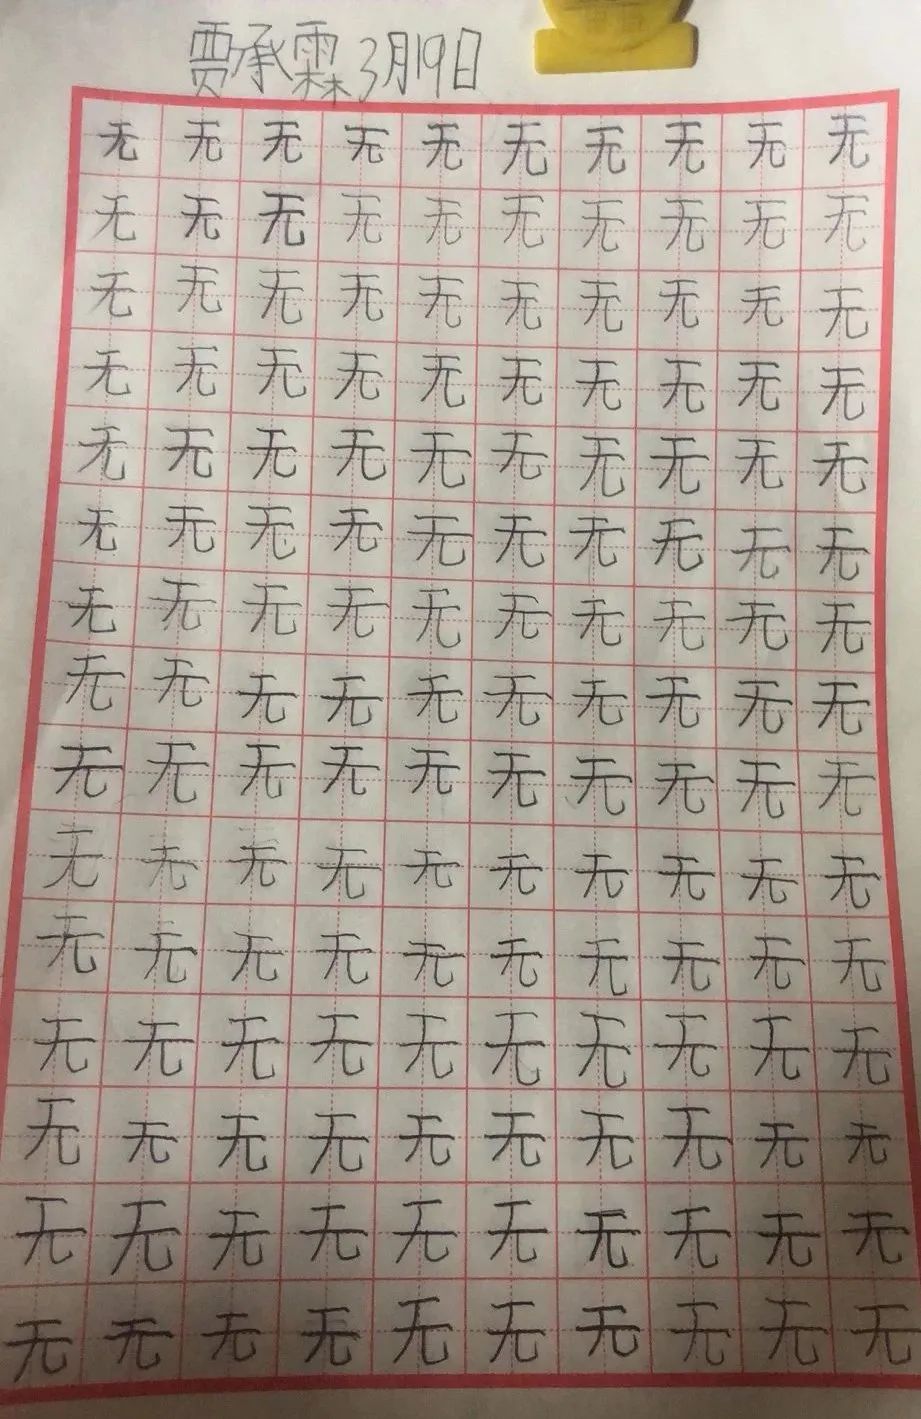 贾承霖3月19日
无无无无无无无无无无
无无无无无无无无无无
无无无无无无无无无无
无无无无无无无无无无
无无无无无无无无无无
无无无无无无无无无无
无无无无无无无无无无
无无无无无无无无无无
无无无无无无无无无无
无无无无无无无无无无
无无无无无无无无无无
无无无无无无无无无无
无无无无无无无无无无
无无无无无无无无无无
无无无无无无无无无无